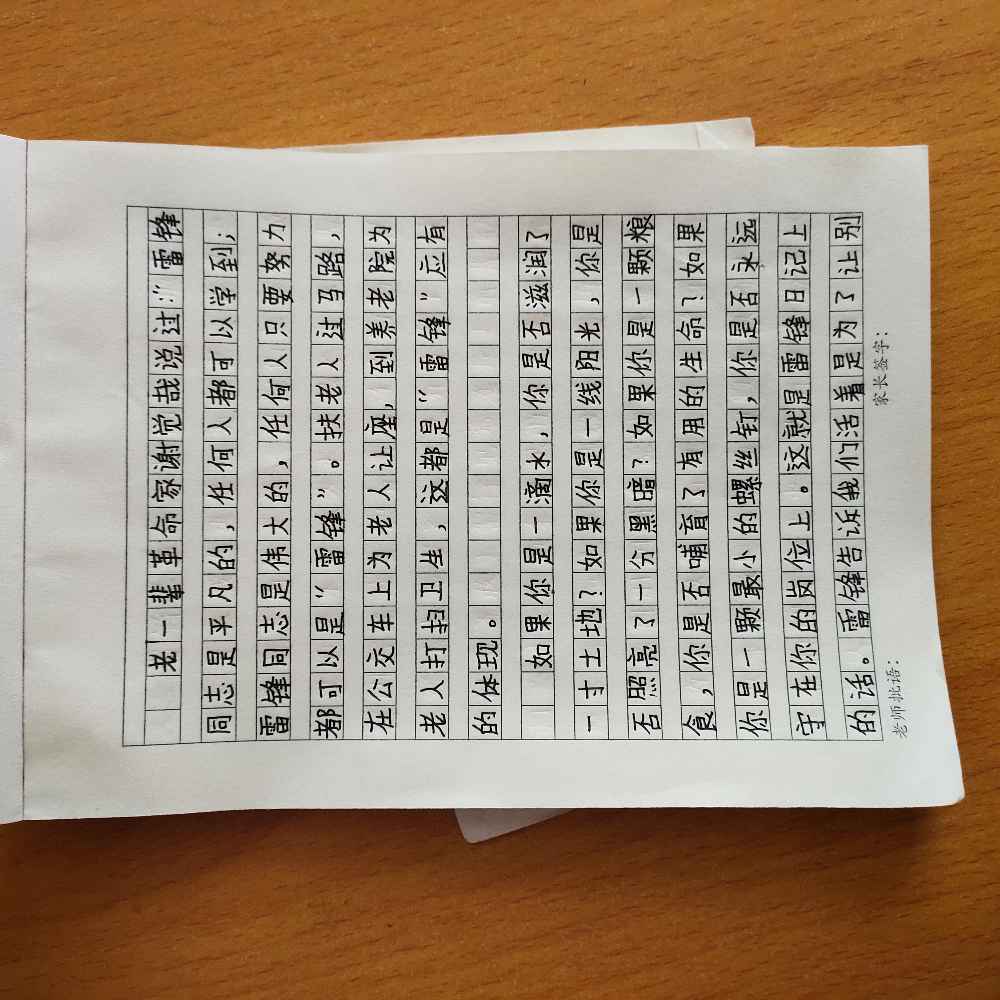 老一辈革命家谢觉哉说过：“雷锋
同志是平凡的，任何人都可以学到；
雷锋同志是伟大的，任何人只要努力
都可以是“雷锋”。扶老人过马路，
在公交车上为老人让座，到养老院为
老人打扫卫生，这都是“雷锋”应有
的体现。
如果你是一滴水，你是否滋润了
一寸土地？如果你是一线阳光，你是
否照亮了一分黑暗？如果你是一颗粮
食，你是否哺育了有用的生命？如果
你是一颗最小的螺丝钉，你是否永远
守在你的岗位上。这就是雷锋日记上
的话。雷锋告诉我们活着是为了让别
老师批语： 家长签字：